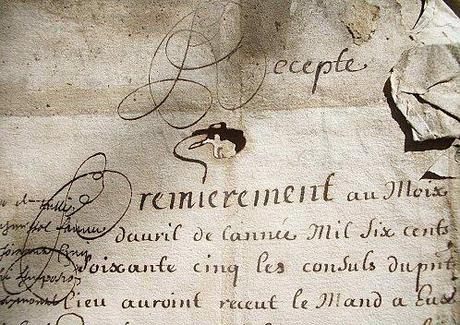 Recepte
Premierement au Moix
dauril de lannée Mil six cents
soixante cinq les consuls du pnt
Lieu auroint receu le Mand a Eux